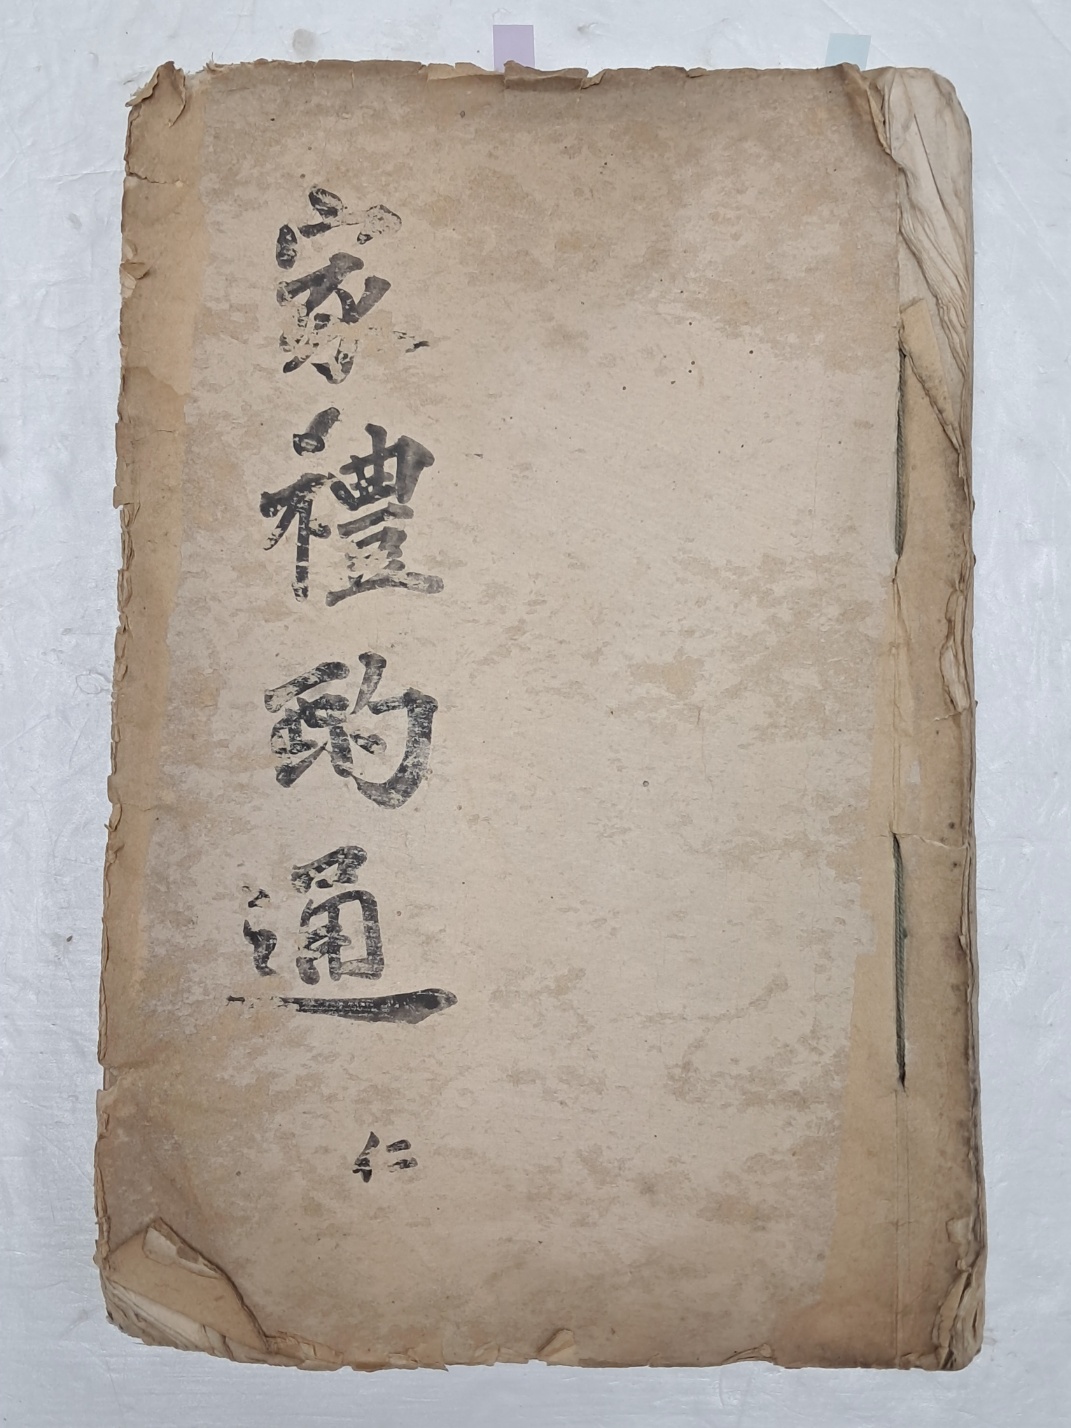 家禮酌通
仁